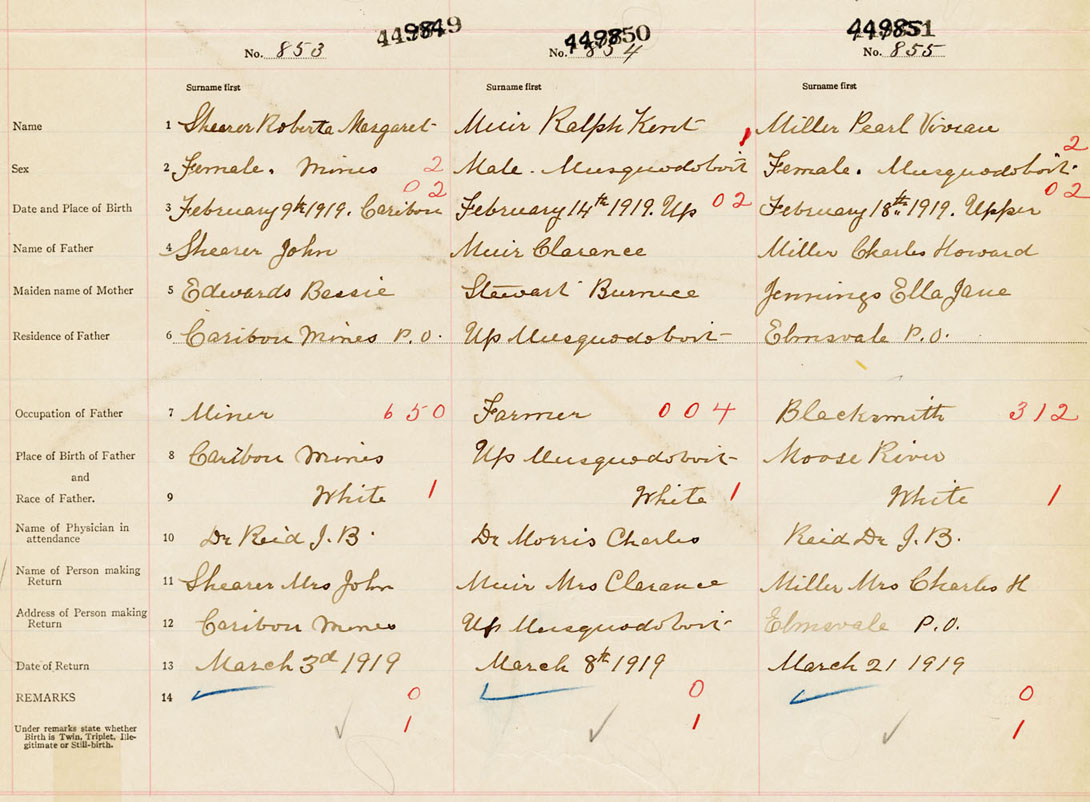 449849 449850 449851
No. 853 No. 854 No. 855
Surname first Surname first Surname first
Name 1 Shearer Roberta Margaret Muir Ralph Kent 1 Miller Pearl Vivian 2
Sex 2 Female. Mines 2 Male. Musquodoboit Female. Musquodoboit.
02 02 02
Date and Place of Birth 3 February 9th 1919. Caribou February 14th 1919. Up February 18th 1919. Upper
Name of Father 4 Shearer John Muir Clarence Miller Charles Howard
Maiden name of Mother 5 Edwards Bessie Stewart Burnice Jennings Ella Jane
Residence of Father 6 Caribou Mines P.O. Up Musquodoboit Elmsvale P.O.
Occupation of Father 7 Miner 650 Farmer 004 Blacksmith 312
Place of Birth of Father 8 Caribou Mines Up Musquodoboit Moose River
and
Race of Father. 9 White 1 White 1 White 1
Name of Physician in
attendance 10 Dr Reid J.B. Dr Morris Charles Reid Dr J.B.
Name of Person making
Return 11 Shearer Mrs John Muir Mrs Clarance Miller Mrs Charles H
Address of Person making
Return 12 Caribou Mines Up Musquodoboit Elmsvale P.O.
Date of Return 13 March 3d 1919 March 8th 1919 March 21 1919
REMARKS 14 0 0 0
Under remarks state whether 1 1 1
Birth is Twin, Triplet, Ille-
gitimate or Still-birth.